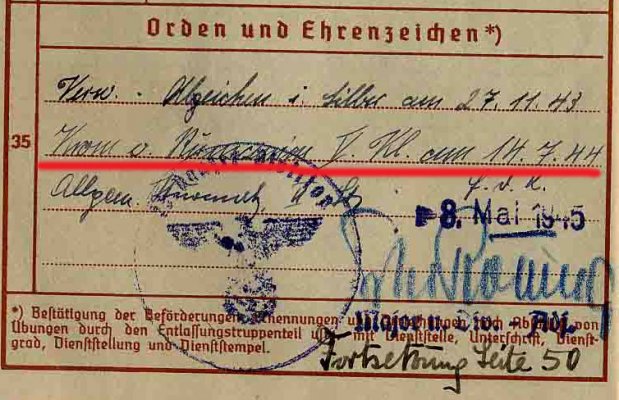 Orden und Ehrenzeichen*)
Verw. - Abzeichen i. Silber am 27. 11. 43
35
Krone v. Rumänien V. Kl. am 14. 7. 44
Allgem. Sturmabz.
f. d. R.
8. Mai 1945
Major u. Adj.
*) Bestätigung der Beförderungen, Ernennungen u. nach von
Übungen durch den Entlassungstruppenteil mit Dienststelle, Unterschrift, Dienst-
grad, Dienststellung und Dienststempel.
Fortsetzung Seite 50